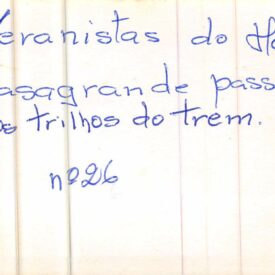 Veranistas do Ho
asagrande pass
os trilhos do trem.
nº 26